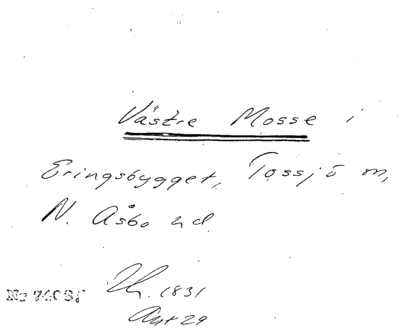 Västre Mosse i
Eringsbygget, Tossjö m,
N. Åsbo hd.
1831
29